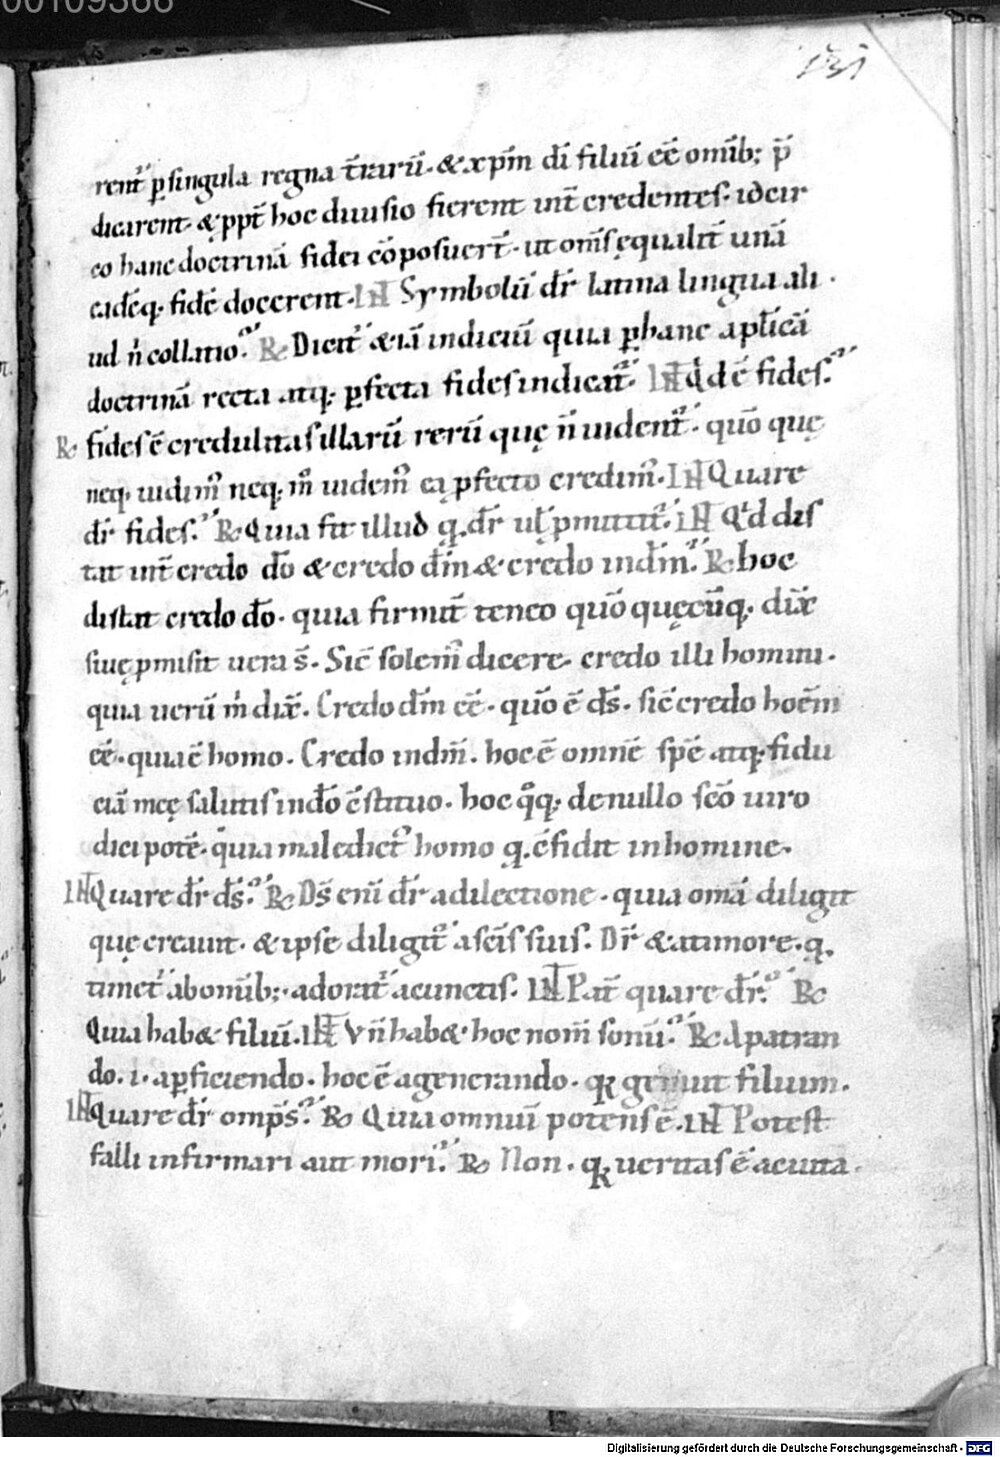 00109366
131
rent᷑ p̱ singula regna t̄rarū· & xp̄m dī filiū eē̄ omīb; p̄
dicarent· & ꝓpt̄ hoc diuisio fierent int̄ credentes· idcir
co hanc doctrinā fidei cōposuer̄t· ut om̄s ęqualit̄ unā
eādēq· fidē docerent· INT Symbolū dr̄ latina lingua ali
ud n̄ collatio? R Dicit᷑ & iā indiciū quia ꝑ hanc aplicā
doctrinā recta atq· ꝑfecta fides indicat᷑· INT Qd ē fides?
R fides ē credulitas illarū rerū quę n̄ uident᷑· quō quę
neq· uidim᷒ neq· m̊ uidem᷒ ea ꝑfecto credim᷒· INT Quare
dr̄ fides? R Quia fit illud q· dr̄ ul̄ ꝓmittit᷑· INT Qd dis
tat int̄ credo dō & credo dm̄ & credo in dm̄? R hoc
distat credo dō· quia firmit̄ teneo quō quęcūq· dix̄
siue ꝓmisit uera s̄· Sic̄ solem᷒ dicere· credo illi homini·
quia uerū m dix̄· Credo dm̄ eē̄· quō ē ds̄· sic̄ credo hoēm
eē̄· quia ē homo· Credo in dm̄· hoc ē omnē spē atq· fidu
ciā meę salutis in dō c̄stituo· hoc qq· de nullo scō uiro
dici potē· quia maledict᷒ homo q· c̄fidit in homine·
INT Quare dr̄ ds̄? R Ds̄ enī dr̄ a dilectione· quia om̄a diligit
quę creauit· & ipse diligit᷑ a scīs suis· Dr̄ & a timore· q·
timet᷑ ab omīb;· adorat᷑ a cunctis· INT Pat̄ quare dr̄? R
Quia hab& filiū· INT Vn̄ hab& hoc nom̄ sonū? R A patran
do· i· a ꝑficiendo· hoc ē a generando· q· genuit filium·
INT Quare dr̄ omp̄s? R Quia omniū potens ē· INT Potest
falli infirmari aut mori? R Non· q· ueritas ē a cuita
Digitalisierung gefördert durch die Deutsche Forschungsgemeinschaft - DFG